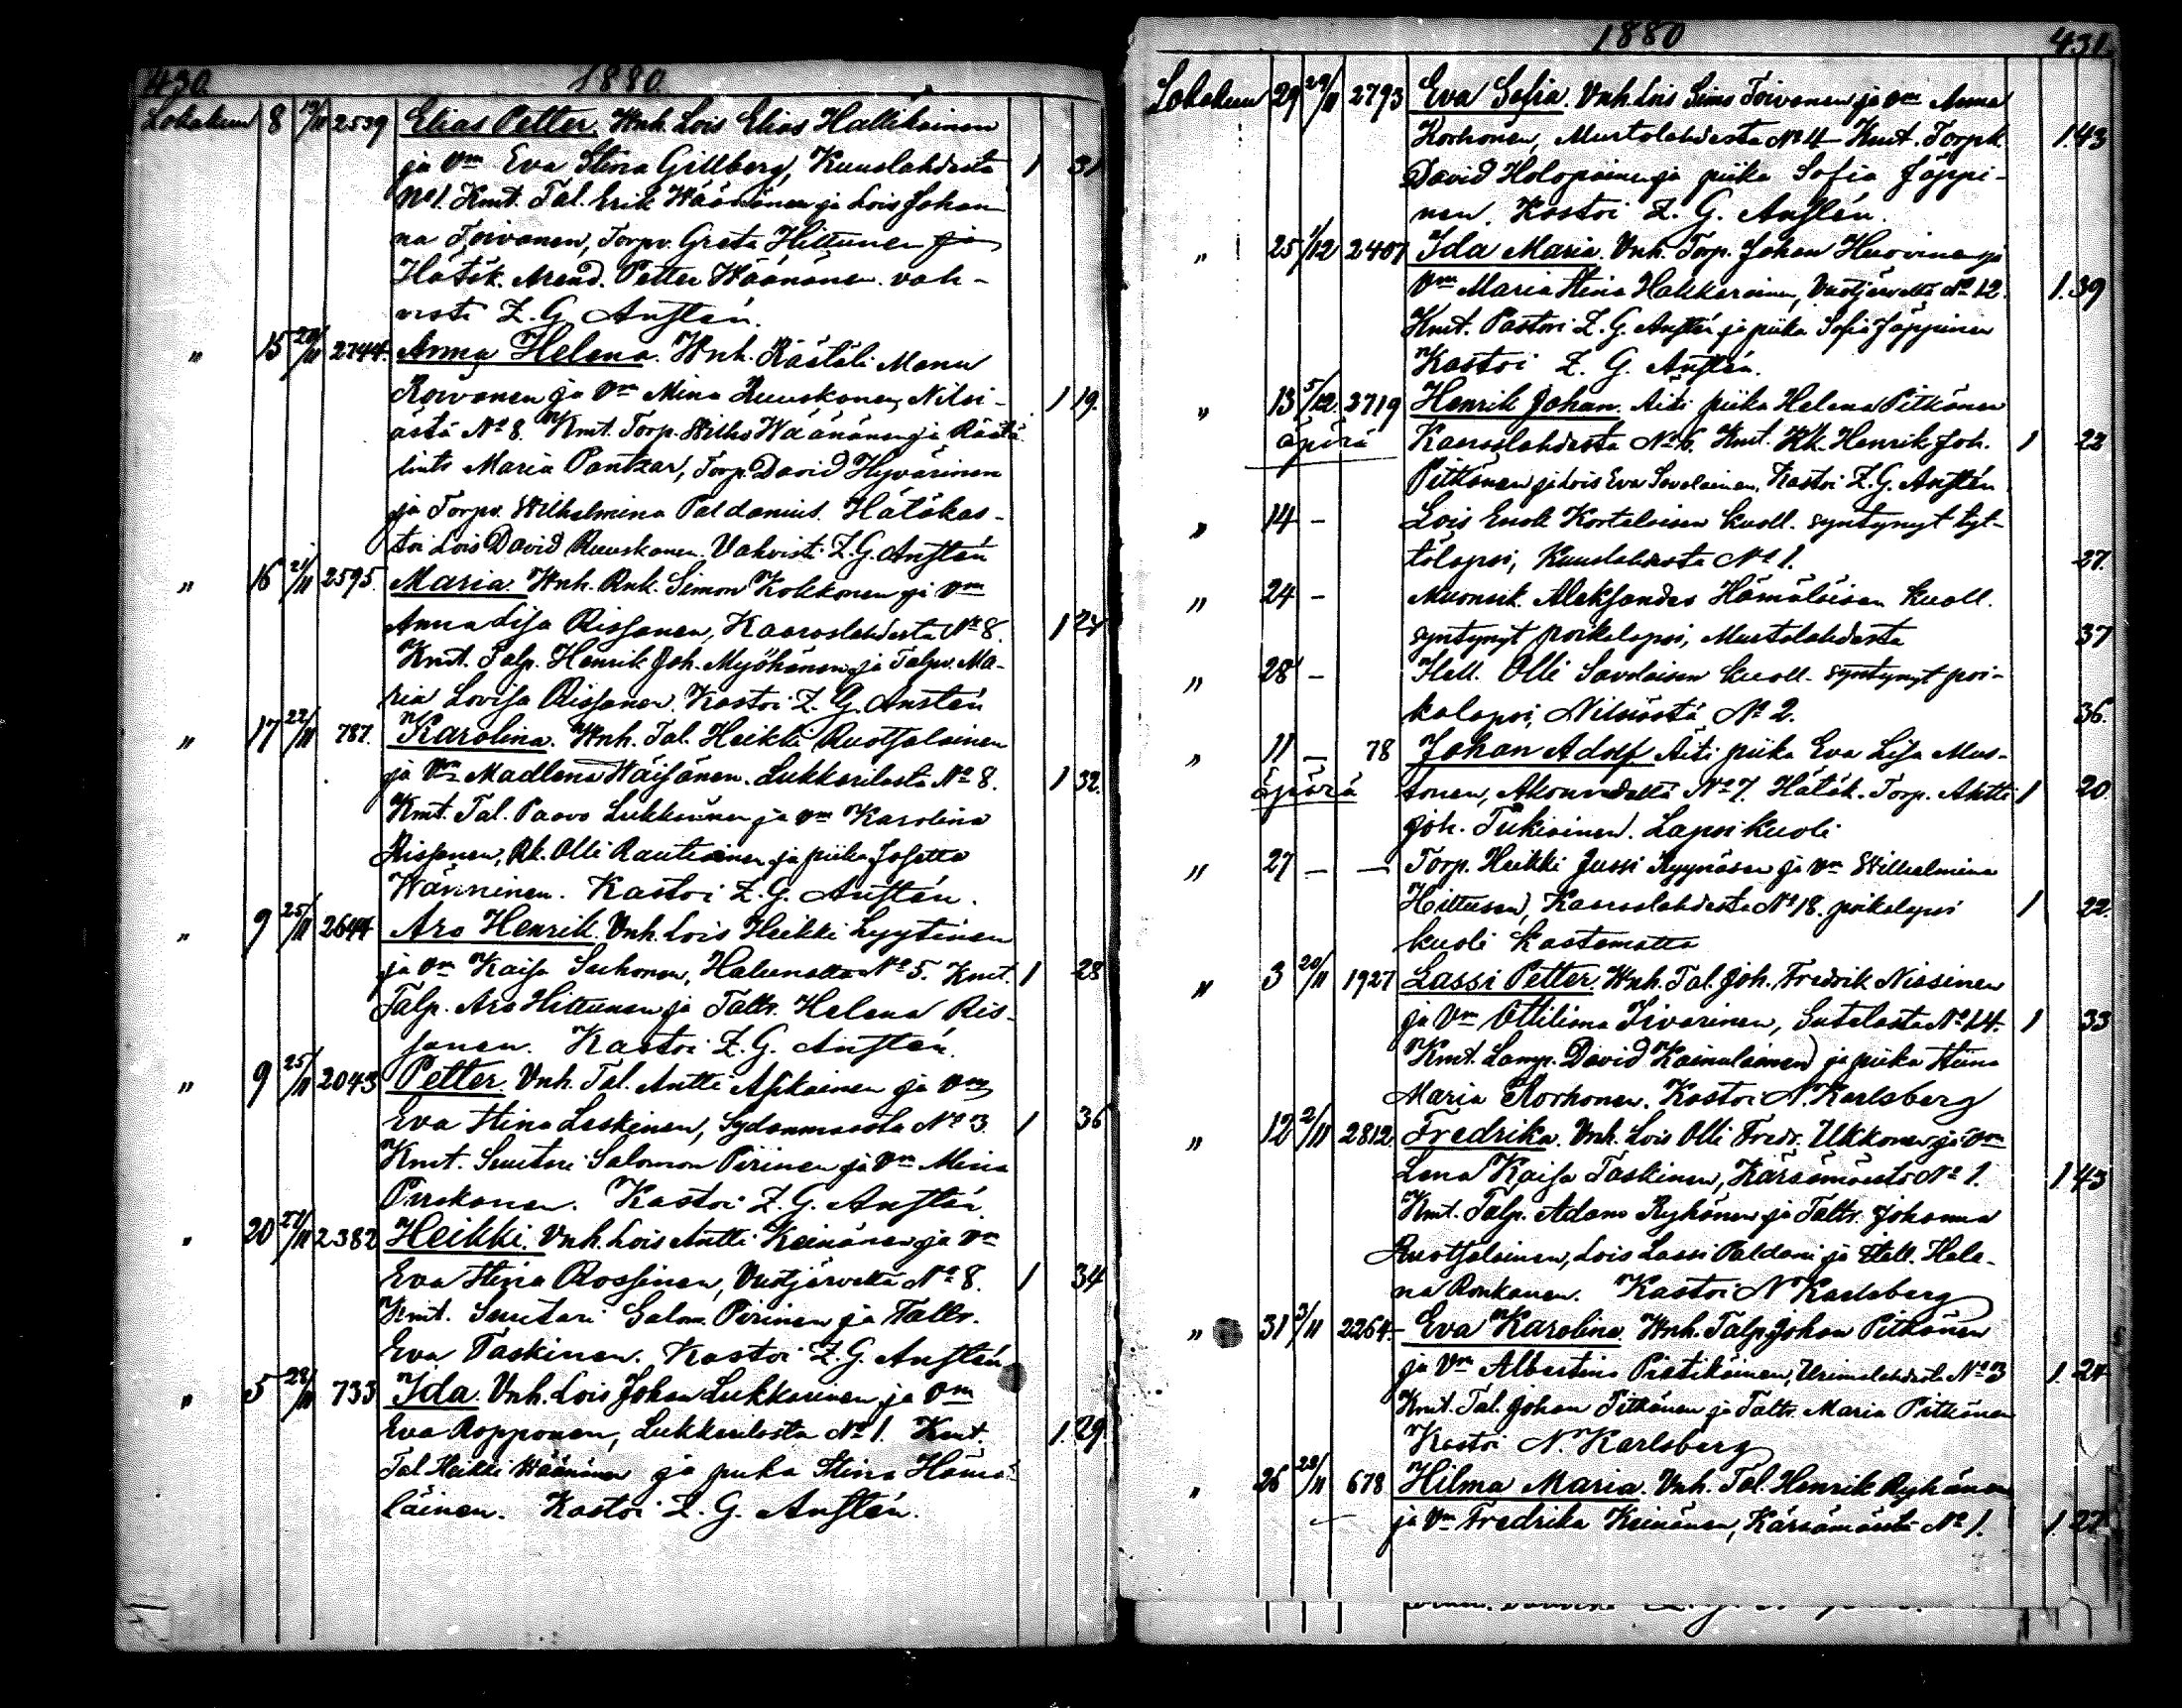 430 1880.
Lokakuu 8 19/11 2539 Elias Petter. Wnh. Lois Elias Hallikainen
ja Vm Eva Stina Gillberg, Kuuslahdesta 1 31
No 1. Kmt. Tal. Erik Wäänänen ja Lois Johan
na Toivonen, Torpv. Greta Hittunen ja
Hätäk. Petter Wäänänen. vah-
visti Z. G. Ansten.
" 15 20/11 2744. Anna Helena. Wnh. Räätäli Manu
Roivonen ja Vm Mina Ruuskonen, Nilsi- 1 19.
ästä No 8. Kmt. Torp. Wilho Wäänänen ja Räätä
lints Maria Pantzar, Torp. David Hyvärinen
ja Torpv. Wilhelmina Paldanius. Hätäkas-
toi Lois David Ruuskonen. Vahvisti Z. G. Ansten
" 16 21/11 2595. Maria. Wnh. Rnk. Simon Kokkonen ja Vm
Anna Lisa Rissanen, Kaaraslahdesta No 8. 1 24
Kmt. Talp. Henrik Joh. Myöhänen ja Talpv. Ma-
ria Lovisa Rissanen. Kastoi Z. G. Ansten
" 17 22/11 787. Karolina. Wnh. Tal. Heikki Ruotsalainen
ja Vm Madlena Wäisänen. Lukkarilasta No 8. 1 32.
Kmt. Tal. Paavo Lukkarinen ja Vm Karolina
Rissanen, Rk. Olli Rautiainen ja piika Josetta
Wänninen. Kastoi Z. G. Ansten.
" 9 25/11 2644 Aro Henrik. Vnh. Lois Heikki Lyytinen
ja Vm Kaisa Suhonen, Halunalta No 5. Kmt. 1 28
Talp. Aro Hittunen ja Taltr. Helena Ris-
sanen. Kastoi Z. G. Ansten.
" 9 25/11 2043 Petter. Vnh. Tal. Antti Asikainen ja Vm
Eva Stina Laskinen, Sydänmaasta No 3. 1 36
Kmt. Suutari Salomon Pirinen ja Vm Mina
Purskanen. Kastoi Z. G. Ansten.
" 20 27/11 2382 Heikki. Vnh. Lois Antti Keinänen ja Vm
Eva Stina Rossinen, Vuotjärveltä No 8. 1 34
Kmt. Suutari Salom. Pirinen ja Taltr.
Eva Taskinen. Kastoi Z. G. Ansten
" 5 28/11 733 Ida. Vnh. Lois Johan Lukkarinen ja Vm
Eva Ropponen, Lukkarilasta No 1. Kmt. 1. 29
Tal. Heikki Wäänänen ja piika Stina Hämä-
läinen. Kastoi Z. G. Ansten.
1880 431.
Lokakuu 29 29/11 2793 Eva Sofia. Vnh. Lois Simo Toivonen ja Vm Anna
Korhonen, Murtolahdesta No 4 Kmt. Torpk. 1. 43
David Holopainen ja piika Sofia Jäppi-
nen. Kastoi Z. G. Ansten.
" 25 1/12 2407 Ida Maria. Vnh. Torp. Johan Huovinen ja
Vm Maria Stina Hakkarainen, Vuotjärveltä No 12. 1. 39
Kmt. Pastori Z. G. Ansten ja piika Sofia Jäppinen
Kastoi Z. G. Ansten.
" 13 5/12. 2719 Henrik Johan. Äiti piika Helena Pitkänen
äpärä Kaaraslahdesta No 6. Kmt. Kk. Henrik Joh. 1 22
Pitkänen ja Lois Eva Savolainen. Kastoi Z. G. Ansten.
" 14 - Lois Enok Kortelaisen kuoll. syntynyt tyt-
tölapsi, Kuuslahdesta No 1. 27.
" 24 - Muonsk. Aleksander Hämäläisen kuoll.
syntynyt poikalapsi, Murtolahdesta 37
" 28 - Itell. Olli Savolaisen kuoll. syntynyt poi-
kalapsi, Nilsiästä No 2. 36.
" 11 - 78 Johan Adolf Äiti piika Eva Lisa Mus-
äpärä tonen, Akonvedeltä No 7. Hätäk. Torp. Antti 1 20.
Joh. Tukiainen. Lapsi kuoli
" 27 - - Torp. Heikki Jussi Ryynäsen ja Vm Wilhelmina
Hittusen, Kaaraslahdesta No 18. poikalapsi 1 22.
kuoli kastamatta
" 3 20/11 1927 Lassi Petter. Wnh. Tal. Joh. Fredrik Nissinen
ja Vm Ottiliona Iivarinen, Sutelasta No 14. 1 33
Kmt. Lamp. David Kainulainen ja piika Stina
Maria Korhonen. Kastoi N. Karlsberg
" 12 2/11 2812. Fredrika. Vnh. Lois Olli Fredr. Ukkonen ja Vm
Lena Kaisa Taskinen, Kärsämäestä No 1. 1 43
Kmt. Talp. Adam Ryhänen ja Taltr. Johanna
Ruotsalainen, Lois Lassi Paldani ja Itell. Hele-
na Ronkanen. Kastoi N Karlsberg
" 31 3/11 2264 Eva Karolina. Wnh. Talp. Johan Pitkänen
ja Vm Albertina Pietikäinen, Urimolahdesta No 3 1. 24
Kmt. Tal. Johan Pitkänen ja Taltr. Maria Pitkänen
Kastoi N. Karlsberg
" 26 28/11 678 Hilma Maria. Vnh. Tal. Henrik Ryhänen
ja Vm Fredrika Keinänen, Kärsämäestä No 1. 1. 27.